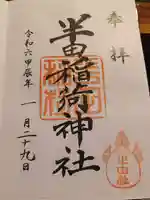 奉拝
半田稲荷神社
令和六甲辰年
一月二十九日